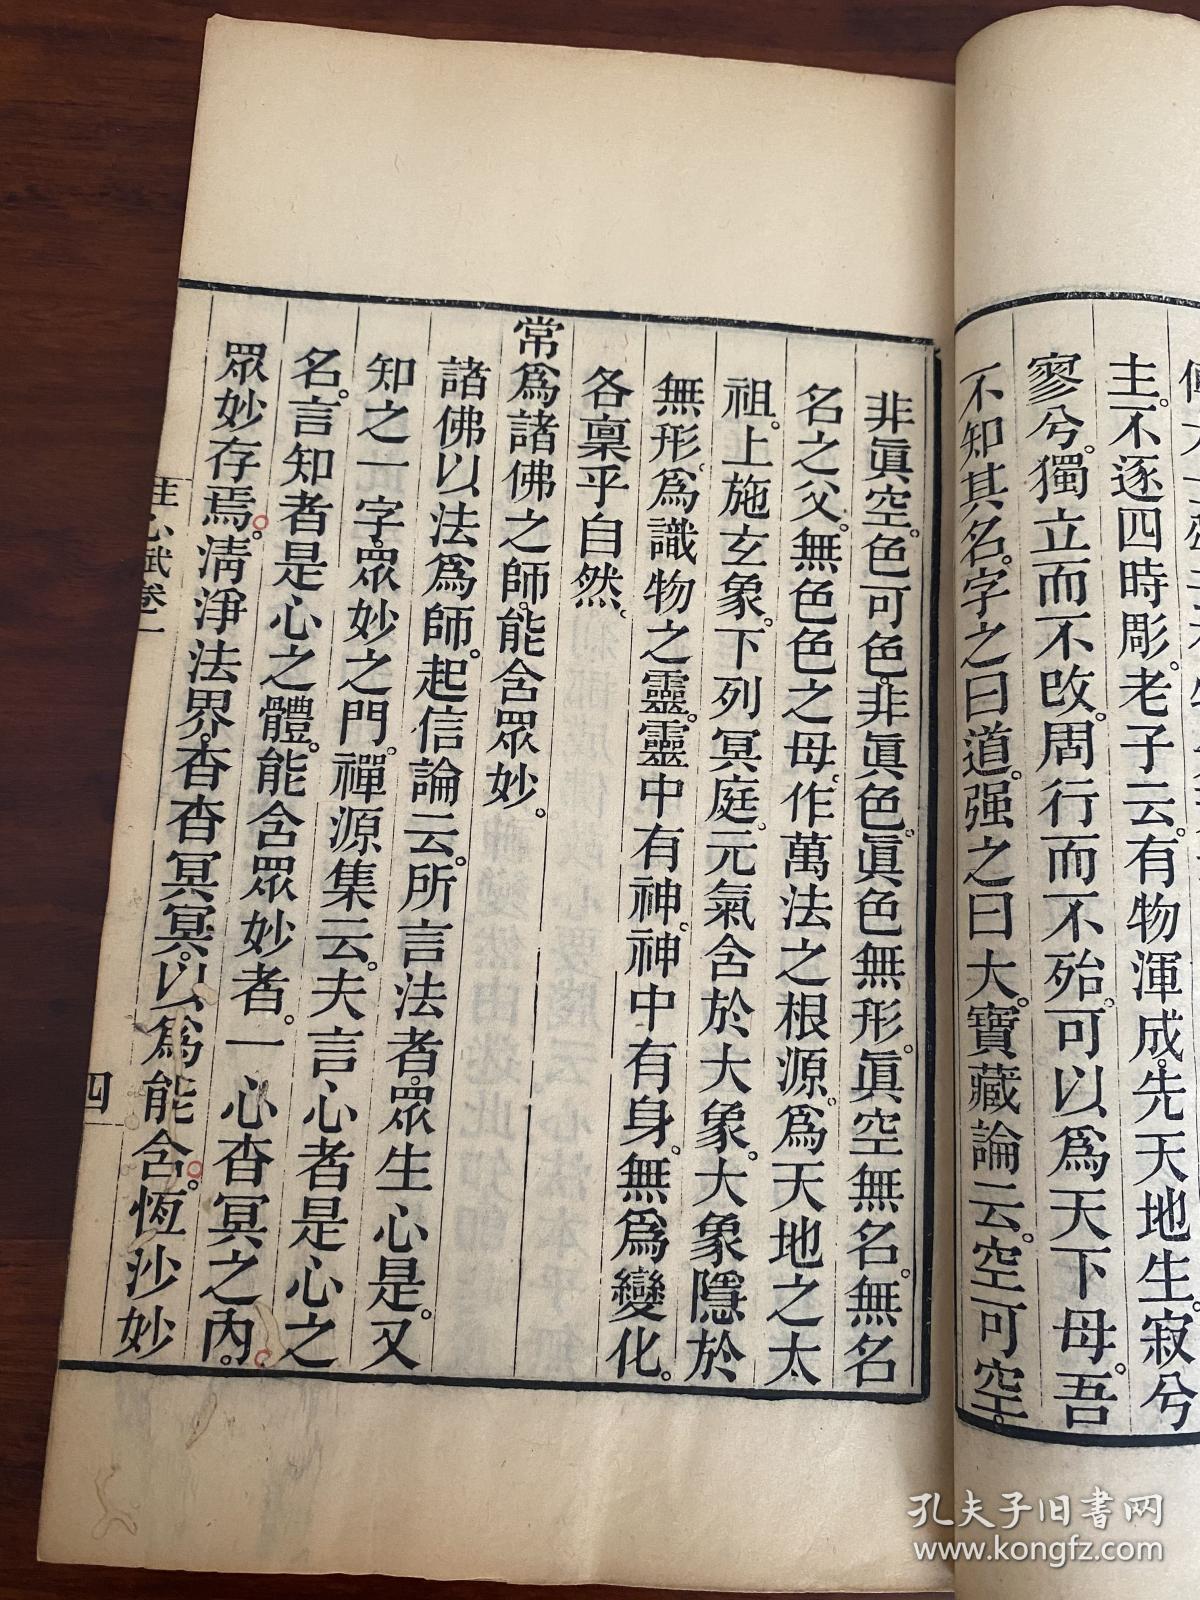 主。不逐四時彫。老子云。有物渾成。先天地生。寂兮
寥兮。獨立而不改。周行而不殆。可以爲天下母。吾
不知其名。字之曰道。强之曰大。寶藏論云。空可空。
非眞空。色可色。非眞色。眞色無形。眞空無名。無名
名之父。無色色之母。作萬法之根源。爲天地之太
祖。上施玄象。下列冥庭。元氣含於大象。大象隱於
無形。爲識物之靈。靈中有神。神中有身。無爲變化。
各稟乎自然。
常爲諸佛之師。能含眾妙。
諸佛以法爲師。起信論云。所言法者。眾生心是。又
知之一字。眾妙之門。禪源集云。夫言心者。是心之
名。言知者。是心之體。能含眾妙者。一心杳冥之內。
眾妙存焉。淸淨法界。杳杳冥冥。以爲能含。恆沙妙
註心賦卷一
四
孔夫子旧书网
www.kongfz.com